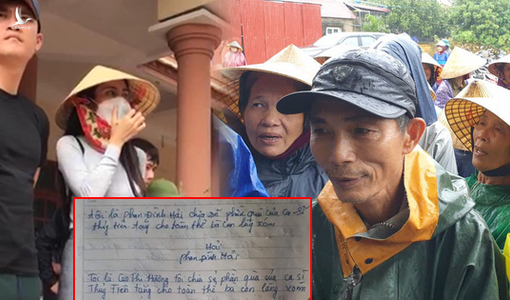 tôi là phan Đình Hải chia sẻ phần quà của ca sĩ
thủy tiên tặng cho toàn thể bà con làng xóm
Hải
phan Đình Hải
Tôi là Cao Thị Hường tôi chia sẻ phần quà của ca sĩ
Thủy Tiên tặng cho toàn thể bà con làng xóm